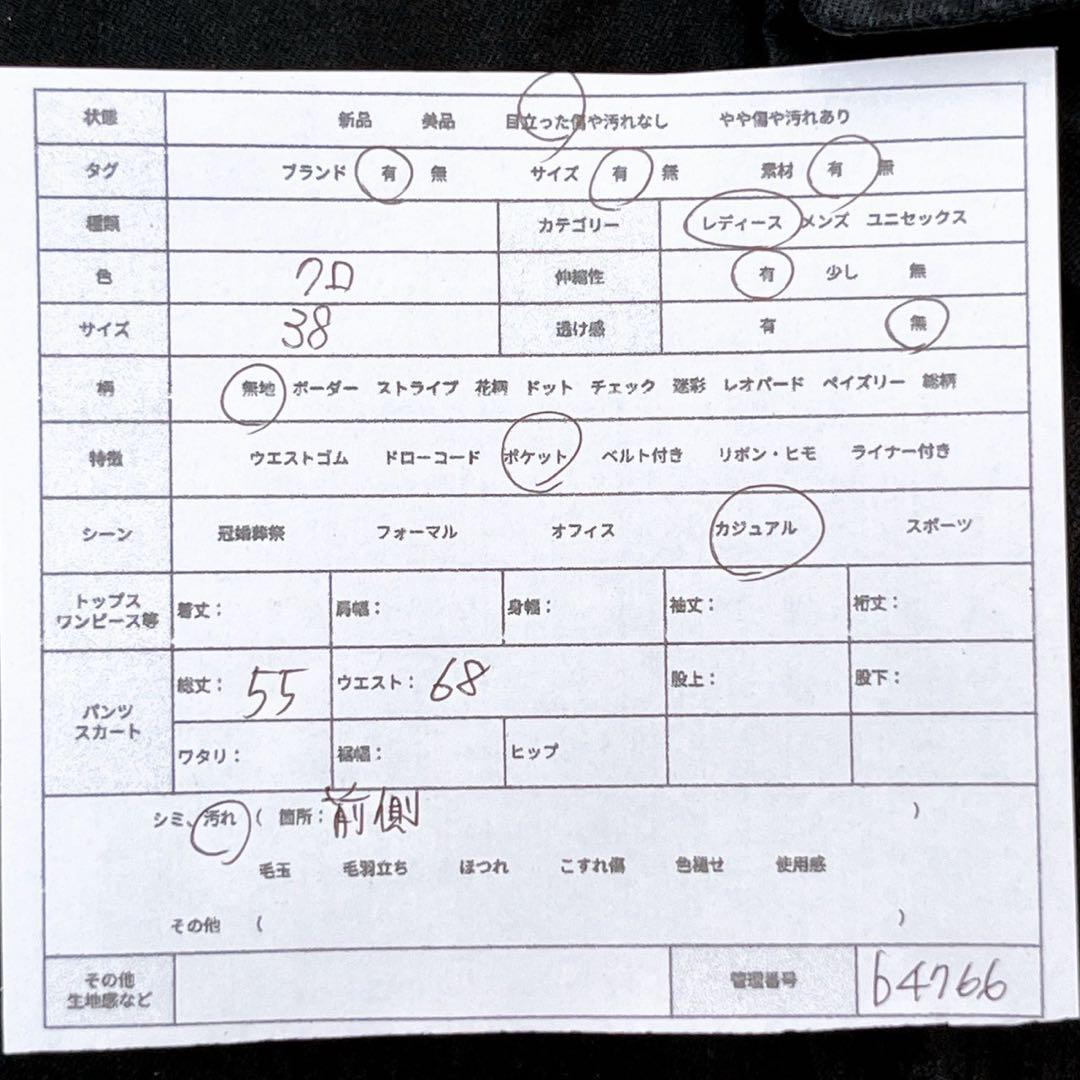 状態 新品 美品 目立った傷や汚れなし やや傷や汚れあり
タグ ブランド 有 無 サイズ 有 無 素材 有 無
種類 カテゴリー レディース メンズ ユニセックス
色 クロ 伸縮性 有 少し 無
サイズ 38 透け感 有 無
柄 無地 ボーダー ストライプ 花柄 ドット チェック 迷彩 レオパード ペイズリー 総柄
特徴 ウエストゴム ドローコード ポケット ベルト付き リボン・ヒモ ライナー付き
シーン 冠婚葬祭 フォーマル オフィス カジュアル スポーツ
トップス
ワンピース等 着丈: 肩幅: 身幅: 袖丈: 裄丈:
総丈: 55 ウエスト: 68 股上: 股下:
パンツ
スカート
ワタリ: 裾幅: ヒップ
シミ、汚れ ( 箇所: 前側 )
毛玉 毛羽立ち ほつれ こすれ傷 色褪せ 使用感
その他 ( )
その他
生地感など 管理番号 b4766